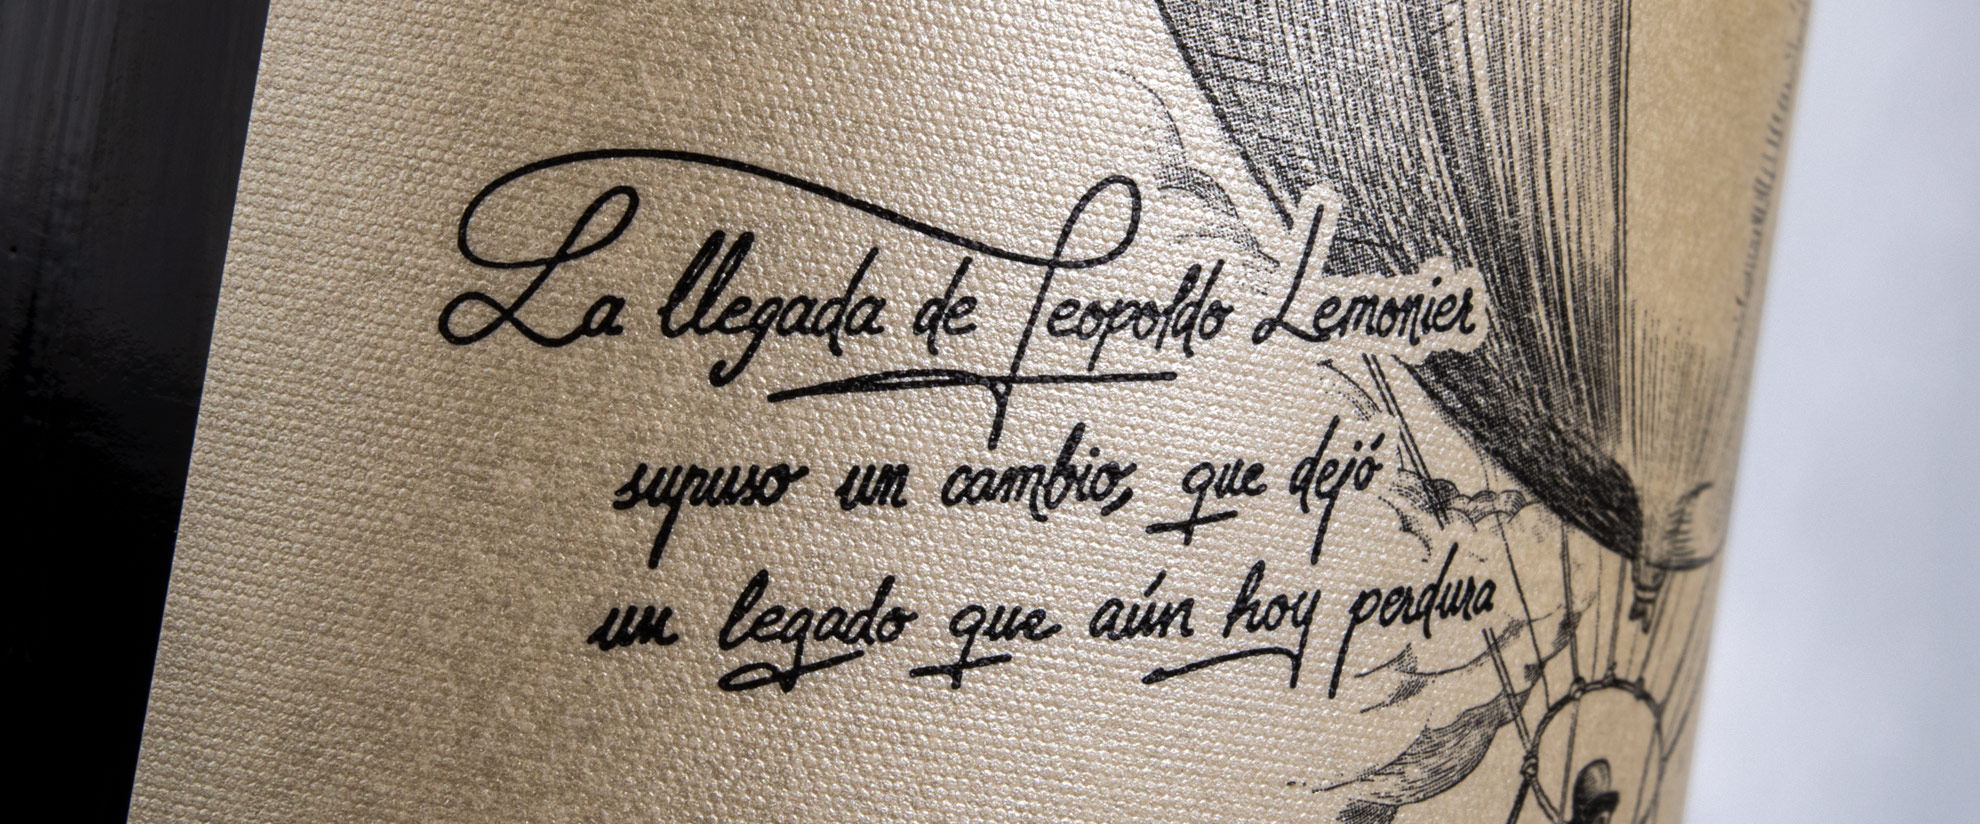 La llegada de Leopoldo Lemonier
supuso un cambio, que dejó
un legado que aún hoy perdura